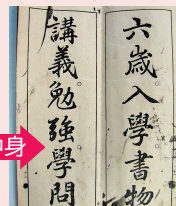 六歳入學書物
講義勉強學問
中身